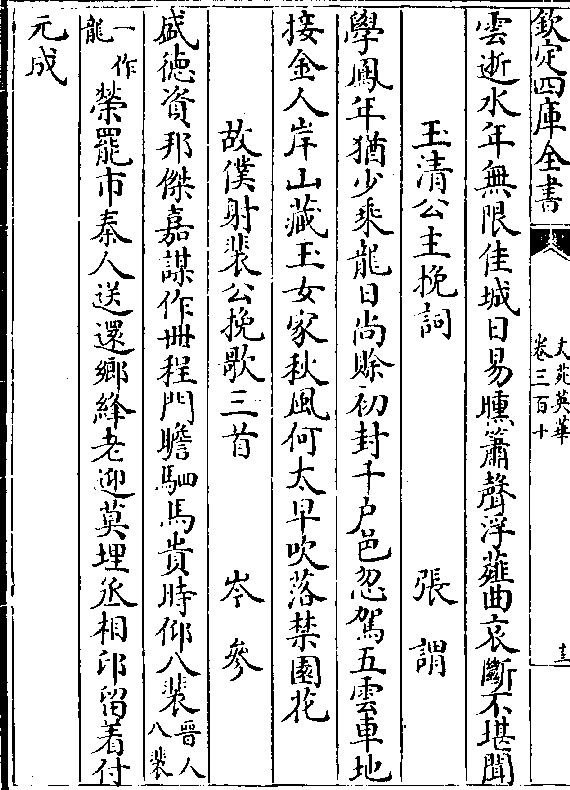 欽定四庫全書
文苑英華
卷三百十
十三
雲逝水年無限佳城日易曛簫聲浮薤曲哀斷不堪聞
玉清公主挽詞 張謂
學鳳年猶少乘龍日尚賒初封千户邑忽駕五雲車地
接金人岸山藏玉女家秋風何太早吹落禁園花
故僕射裴公挽歌三首 岑參
盛德資邦傑嘉謀作丗程門瞻駟馬貴時仰八裴晉人八裴
一作龍榮罷市秦人送還鄉絳老迎莫埋丞相印留着付
元成